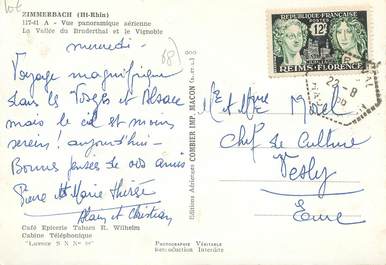 ZIMMERBACH (Ht-Rhin)
117-41 A - Vue panoramique aérienne
La Vallée du Bruderthal et le Vignoble
mercredi -
68
Voyage magnifique
dans les Vosges et Alsace
mais le ciel est moins
serein! aujourd'hui -
Bonnes pensées de vos amis
Pierre et Marie Thérèse
Alain et Christian
Café Epicerie Tabacs R. Wilhelm
Cabine Téléphonique
"Licence S N N° 98"
Photographie Véritable
Reproduction Interdite
Editions Aériennes COMBIER IMP. MACON
RÉPUBLIQUE FRANÇAISE
POSTES
12F
REIMS-FLORENCE
22-8
Mr et Mme Morel
Chef de Culture
Vesly
Eure